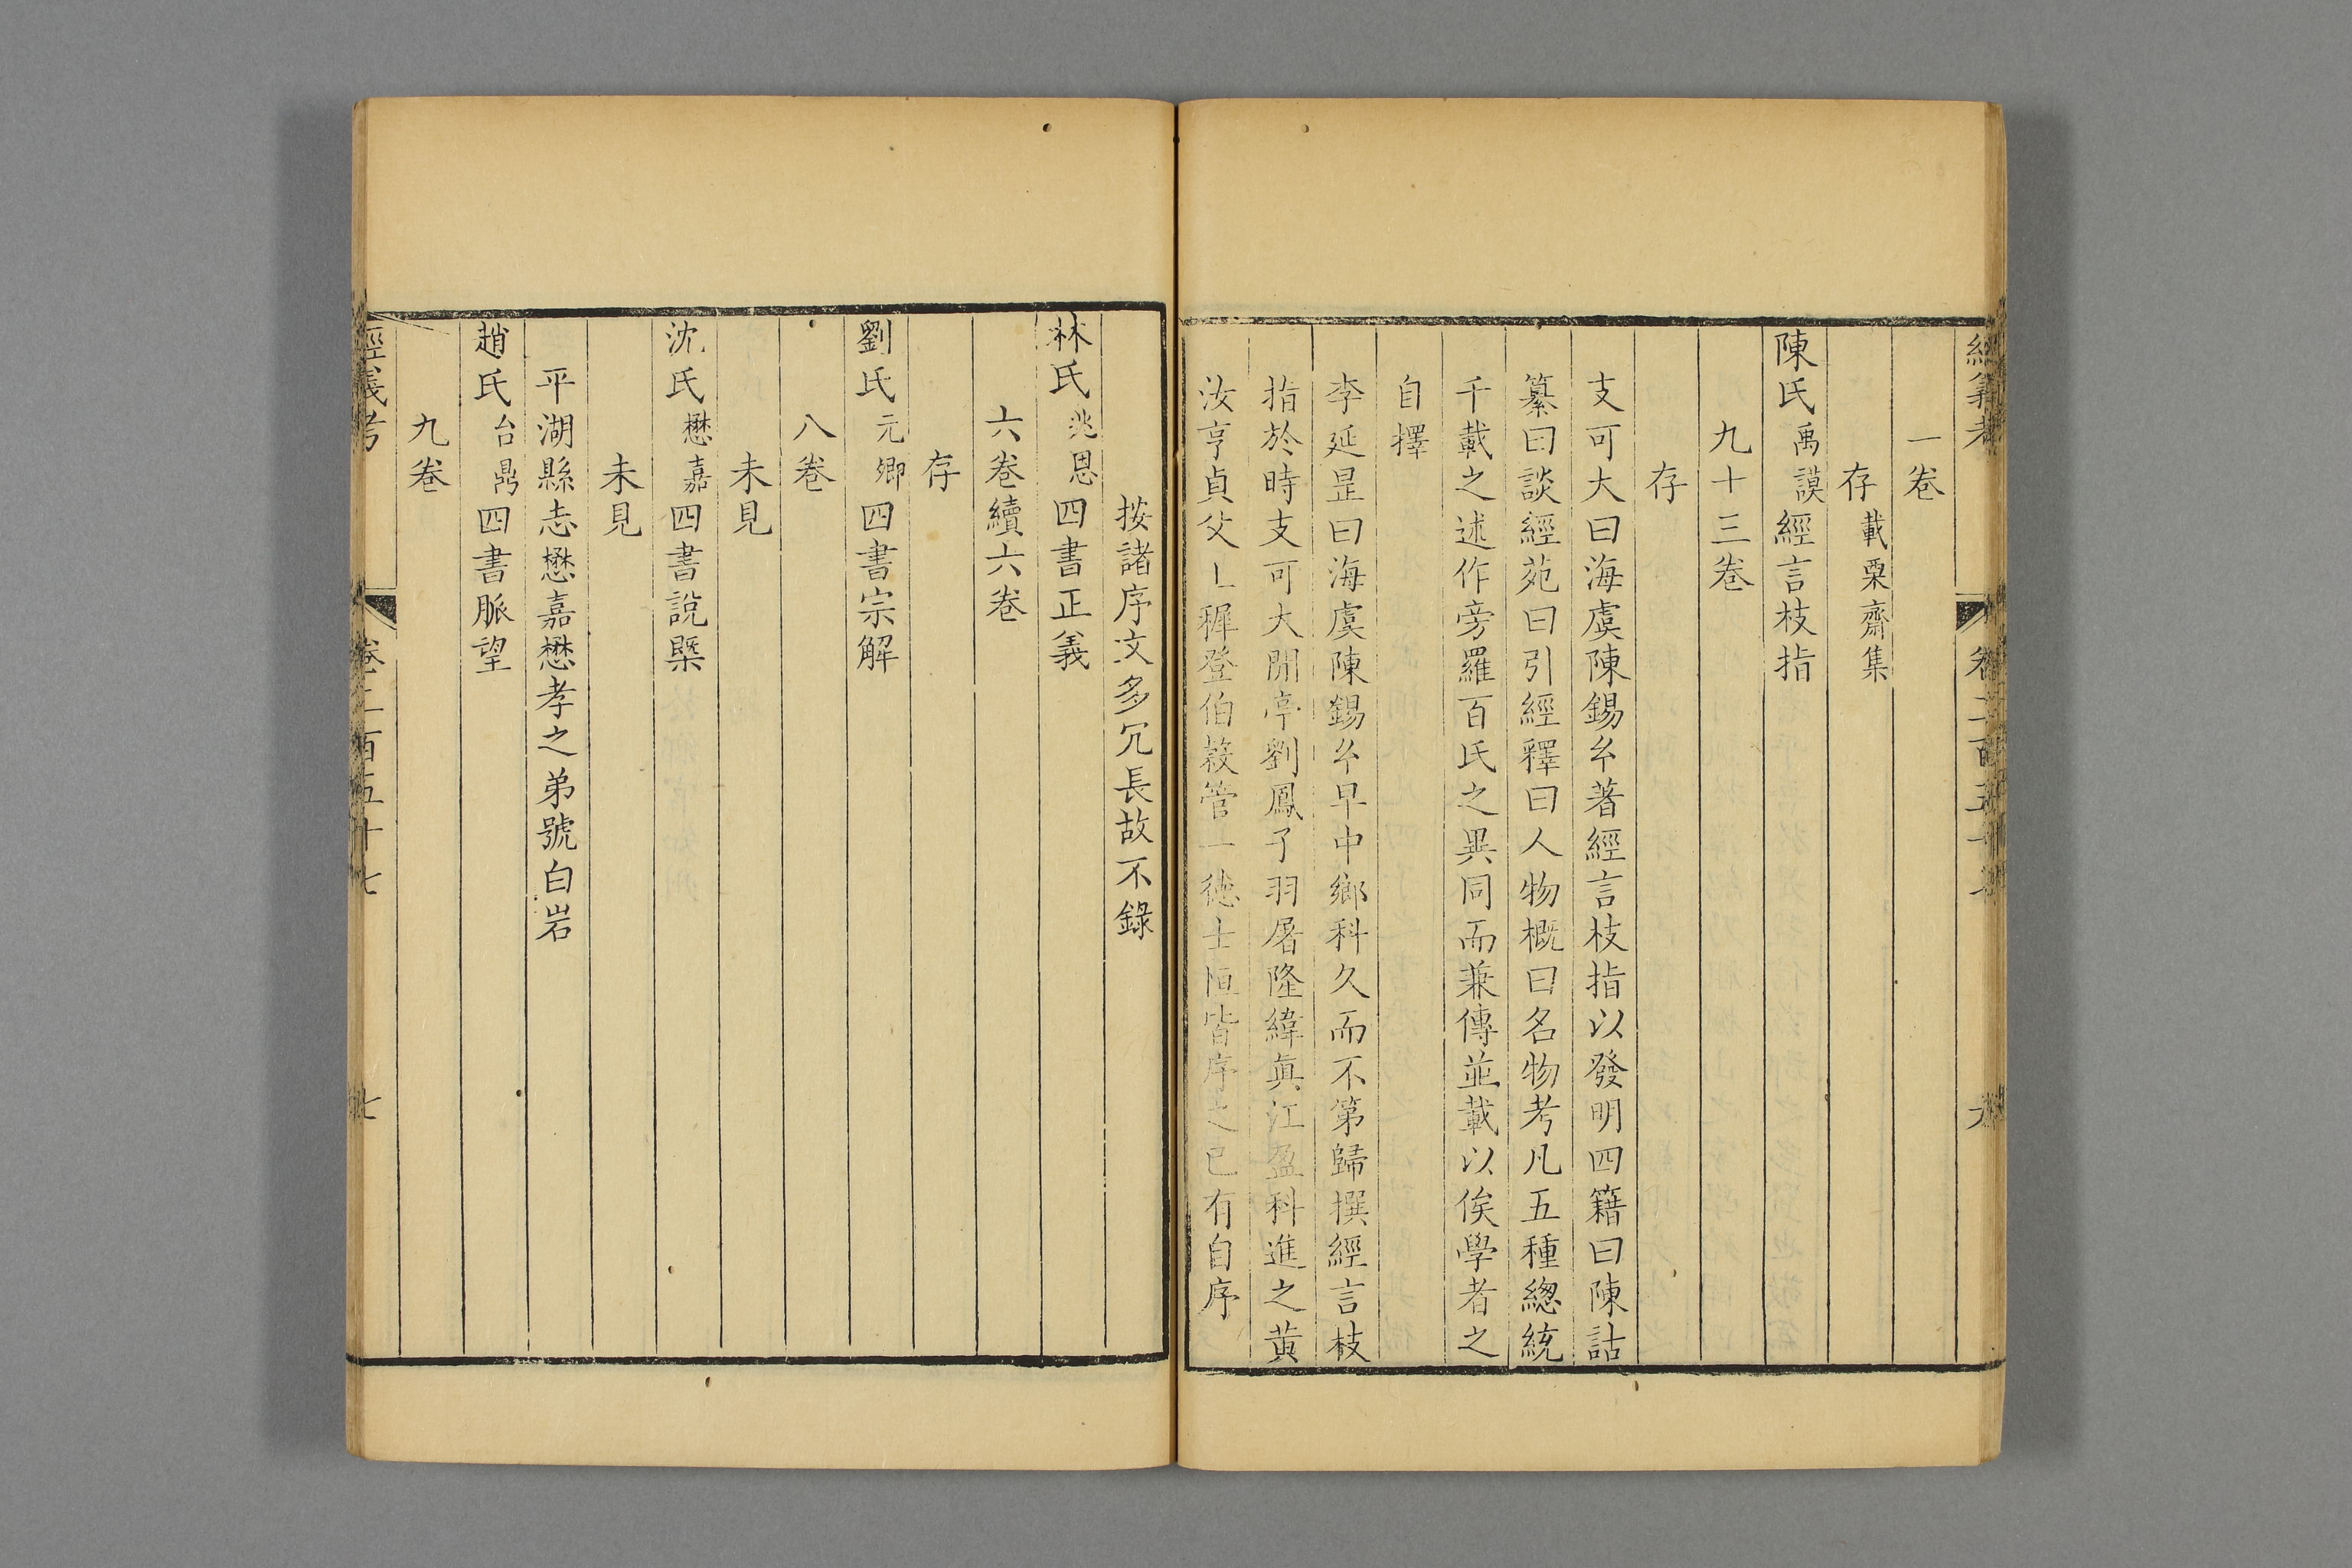 一卷
存載粟齋集
陳氏禹謨經言枝指
九十三卷
存
支可大曰海虞陳錫玄著經言枝指以發明四籍曰陳詁
纂曰談經苑曰引經釋曰人物概曰名物考凡五種總統
千載之述作旁羅百氏之異同而兼傳並載以俟學者之
自擇
李延昰曰海虞陳錫玄早中鄉科久而不第歸撰經言枝
指於時支可大閒亭劉鳳子羽屠隆緯真江盈科進之黃
汝亨貞父王穉登伯穀管一德士恒皆序之已有自序
按諸序文多冗長故不錄
林氏兆恩四書正義
六卷續六卷
存
劉氏元卿四書宗解
八卷
未見
沈氏懋嘉四書說槩
未見
平湖縣志懋嘉懋孝之弟號白岩
趙氏台鼎四書脈望
九卷
經義考 卷二百五十七 七